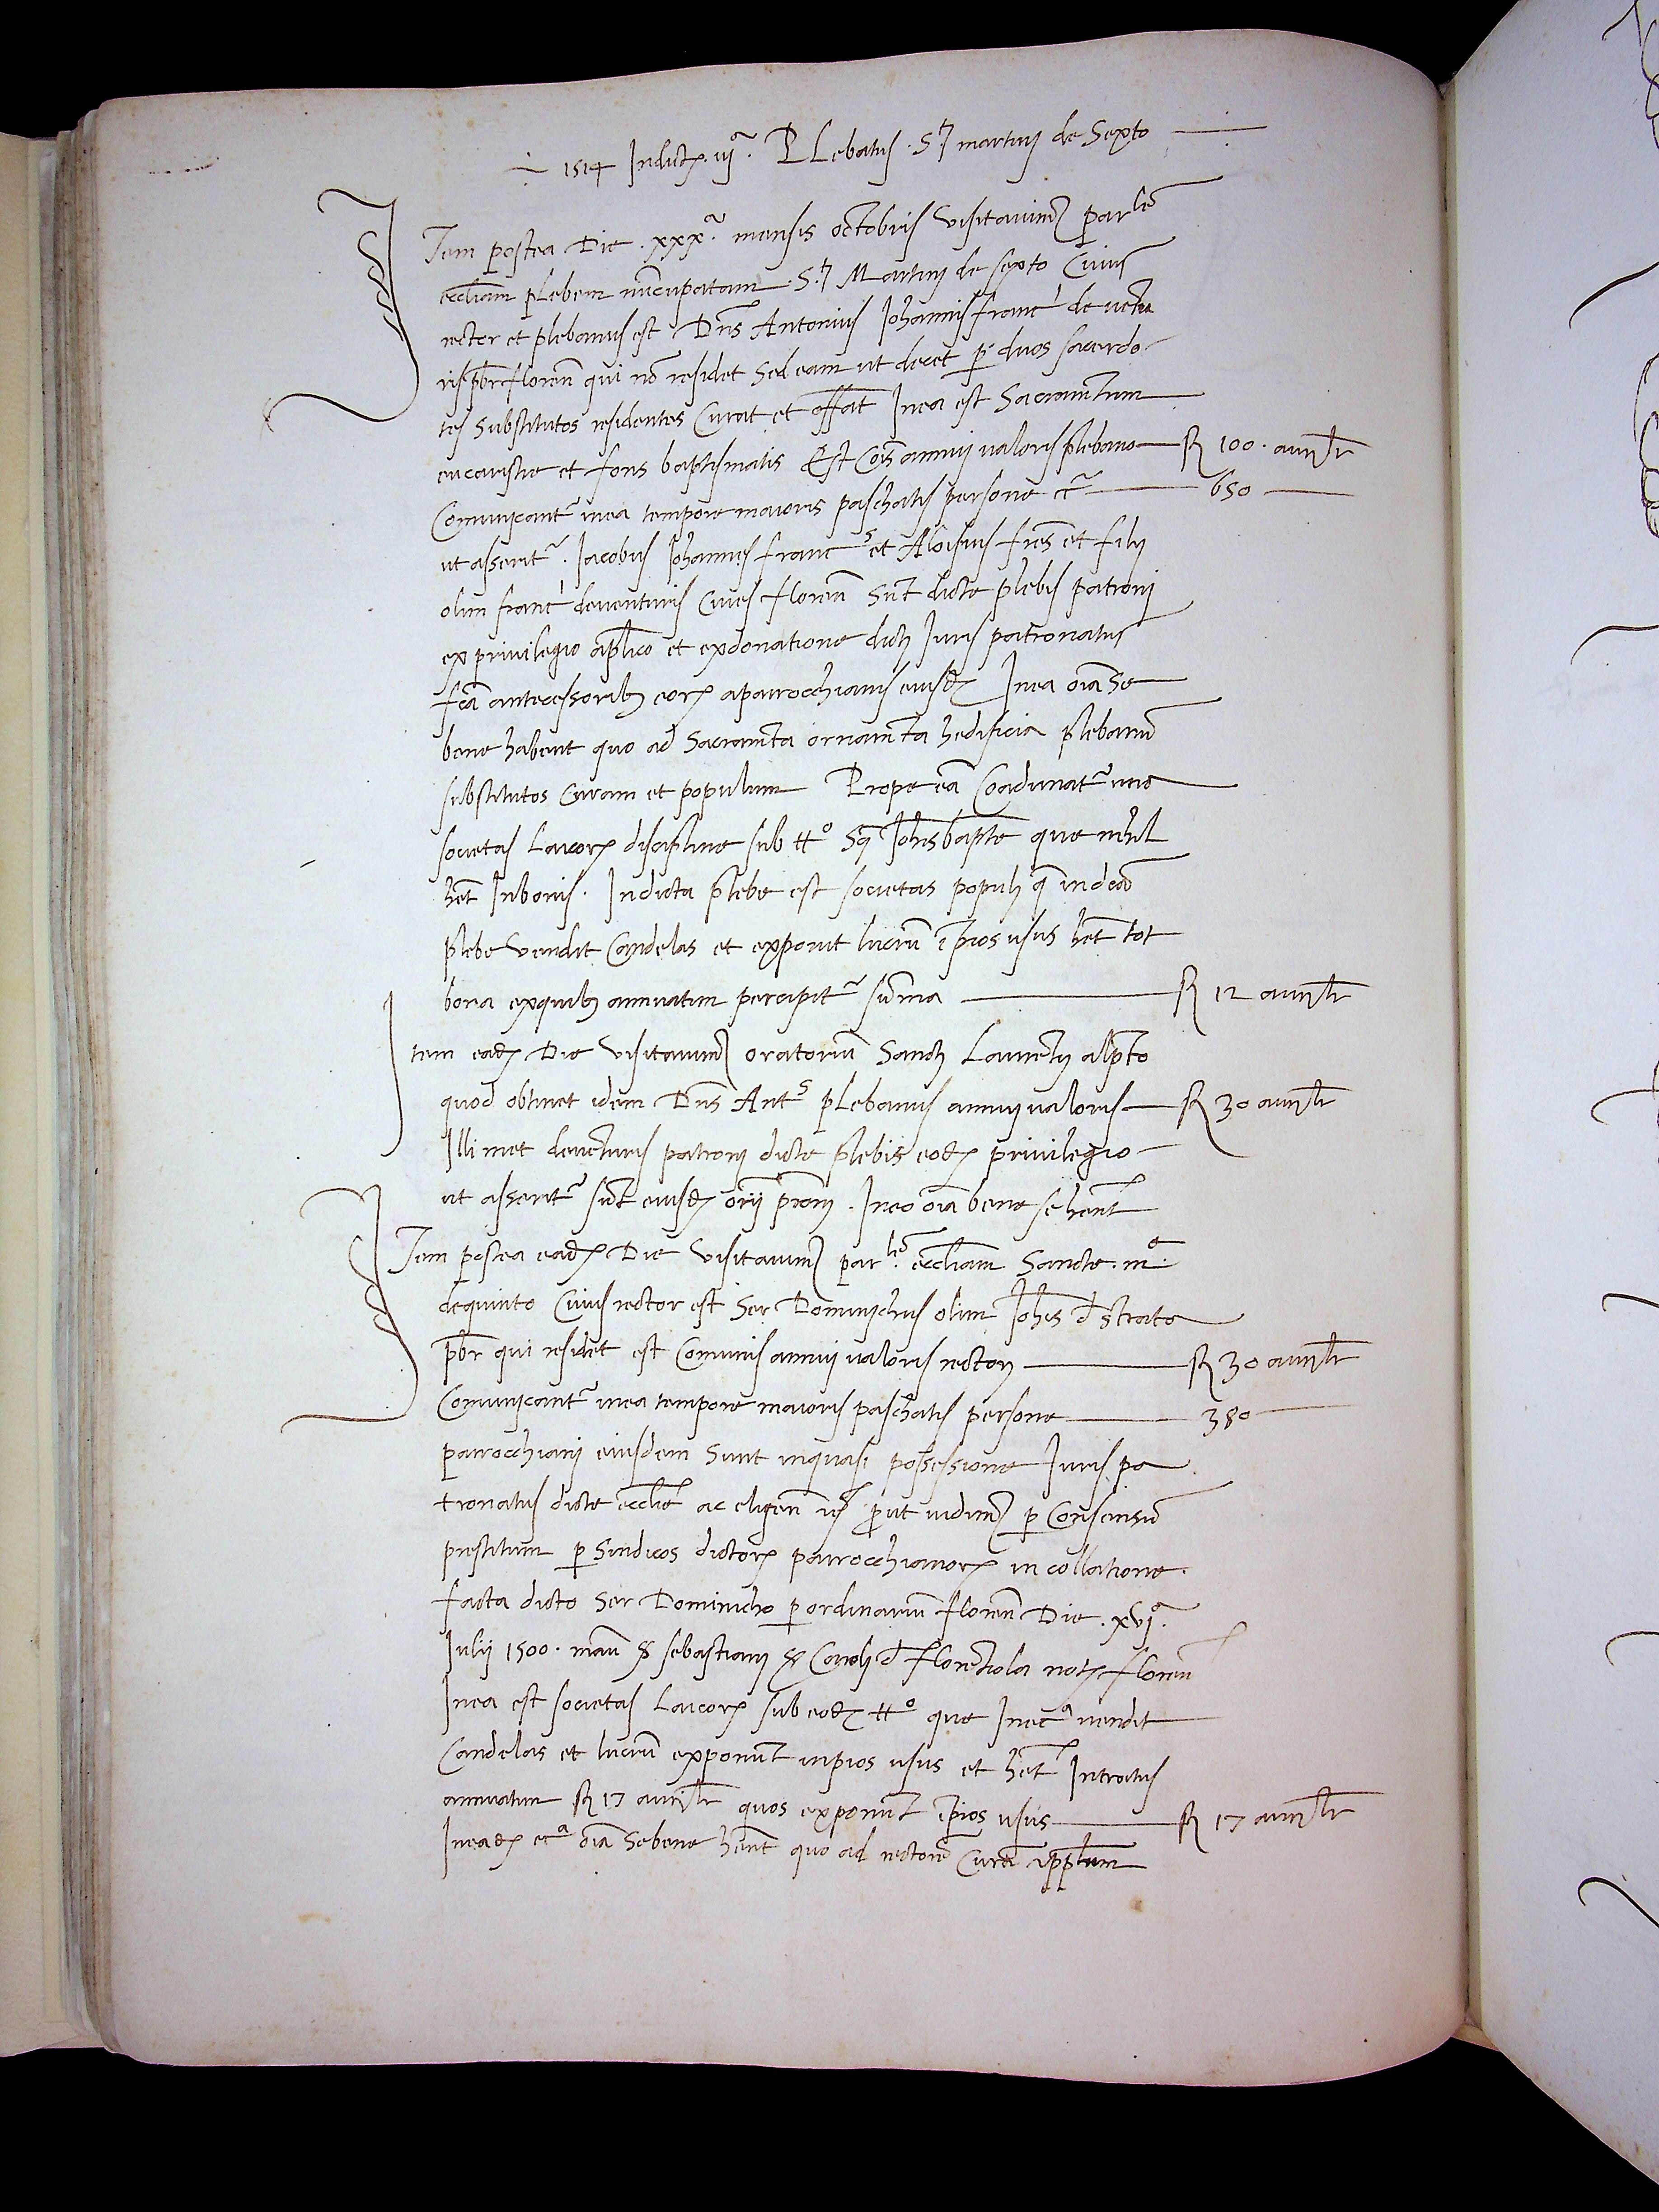 1514 Indict. iij.ᵃ PLebatus S.ti martinj de Sexto
Item postea Die .xxx.ᵃ mensis octobris visitauimꝰ parˡᵉ
eccliam plebem nūcupatam S.ti Martinj de sexto Cuius
rector et plebanus est Dns Antonius Johannis franc de vētu
ris pbr floren qui nō residet sed eam ut decet p duos sacerdo
tes substitutos residentes Curat et offat Inea est Sacramtum
eucaristie et fons baptismatis Est Cōis annuj valoris plebano fl 100. aurj lr
Comunicantʳ inea tempore maioris paschatis persone cʳ 650
ut asseritʳ. Jacobus Johannes francˢ et Aloisius fres et filij
olim franc deventuris Ciues floren Sūt dicte plebis patronj
ex privilegio aplico et exdonatione dictj Juris patronatus
fca antecessoribꝫ eorꝝ aparrocchianis eiusdꝫ Inea oīa Se
bene habent quo ad Sacramta ornamta hedificia plebanū
substitutos Curam et populum Prope eā Coadunatʳ una
societas Laicorꝝ discipline sub ttᵒ Sci Johis bapte que nihil
het Inbonis. Indicta plebe est societas populj q̄ indca
plebe vendit Candelas et exponit lucrū ī pios usus het tot
bona exquibꝫ annuatim percipitʳ sūma fl 12 aurj lr
Item eadꝫ Die visitauimꝰ oratoriū Sanctj Laurētij alpto
quod obtinet idem Dns Antˢ pLebanus annuj valoris fl 30 aurj lr
Illi met deuēturis patronj dicte plebis eodꝫ privilegio
ut asseritʳ sūt eiusdꝫ orij prōnj. Ineo oīa bene se hent
Item postea eadꝫ Die visitauimꝰ parˡᵉ eccliam Sancte .mᵉ.
dequinto Cuius rector est Ser Dominichus olim Johis d strata
pbr qui residet est Comunis annuj valoris rectorj fl 30 aurj lr
Comunicantʳ inea tempore maioris paschatis persone 380
parrocchianj eiusdem Sunt inquasi possessione Juris pa
tronatus dicte ecclie ac eligen prout vidimꝰ p Consensū
prestitum p Sindicos dictorꝝ parrocchianorꝝ in collatione
facta dicto Ser Dominicho p ordinariū floren Die .xvj.ᵃ
Julij 1500. manu S Sebastianj S Carolj d florētiola notꝝ floren
Inea est societas Laicorꝝ sub eodꝫ ttᵒ que Inecᵃ vendit
Candelas et lucrū exponūt inpios usus et het Introitus
annuatim fl 17 aurj lr quos exponūt ī pios usus fl 17 aurj lr
Ineadꝫ ecᵃ oīa Sebene hent quo ad rectorē Curā et pplum